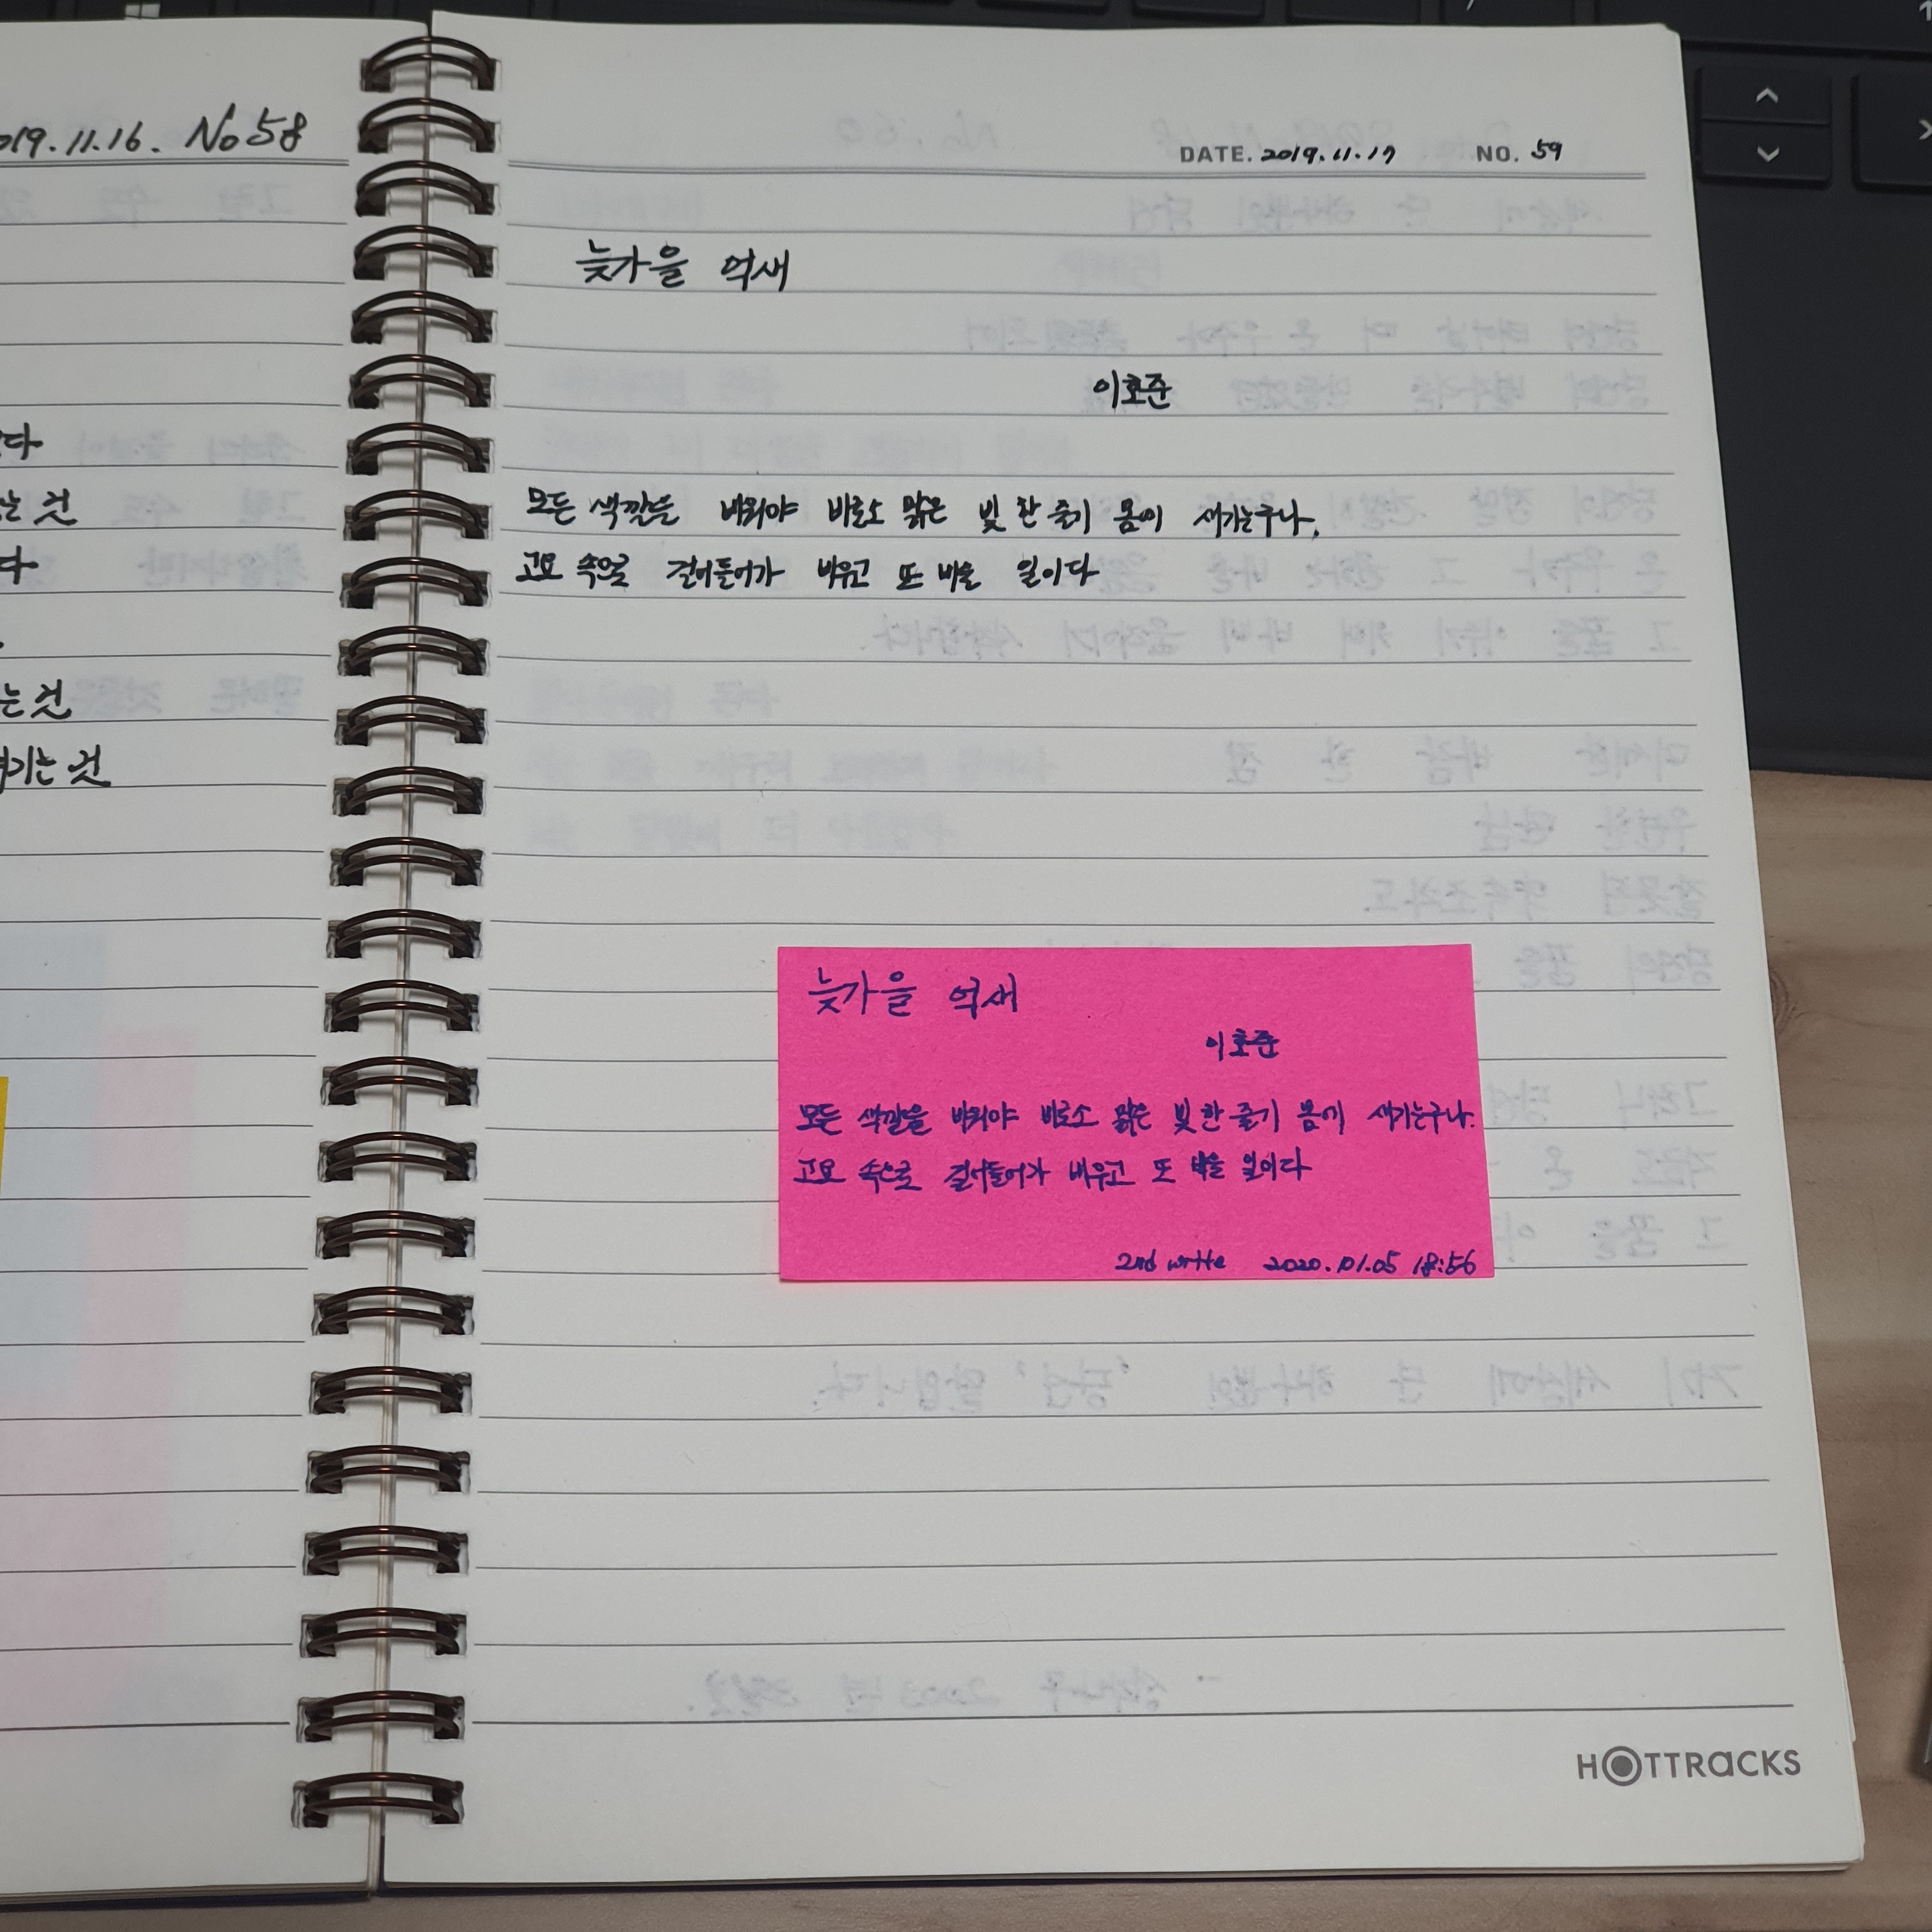 019.11.16. No 58
다
는 것
다
는 것
기는 것
DATE. 2019.11.17 NO. 59
늦가을 억새
이호준
모든 색깔을 비워야 비로소 맑은 빛 한 줄기 몸에 새기는구나.
고요 속으로 걸어들어가 비우고 또 비울 일이다
늦가을 억새
이호준
모든 색깔을 비워야 비로소 맑은 빛 한 줄기 몸에 새기는구나.
고요 속으로 걸어들어가 비우고 또 비울 일이다
2nd write 2020.01.05 18:56
HOTTRACKS